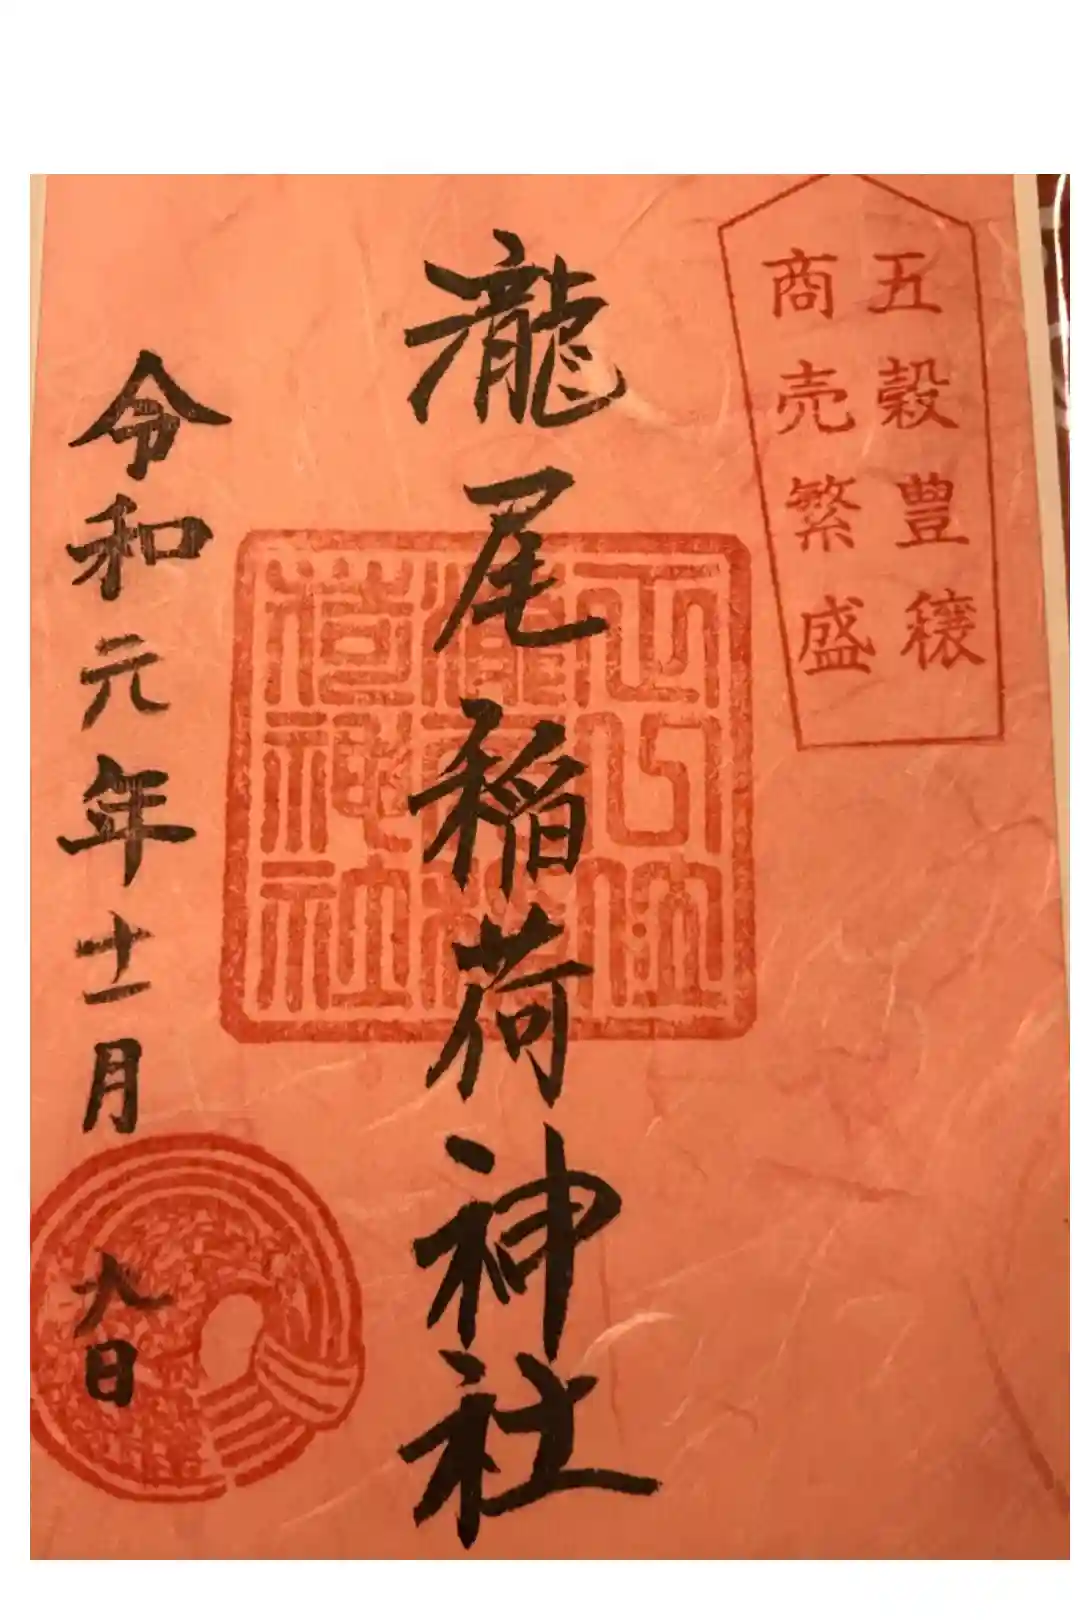 五穀豊穣
商売繁盛
瀧尾稲荷神社
正一位
荷神社
令和元年十一月九日